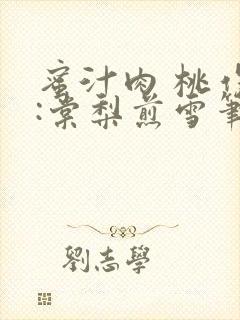 蜜汁肉桃
:棠梨煎雪筆
劉志學